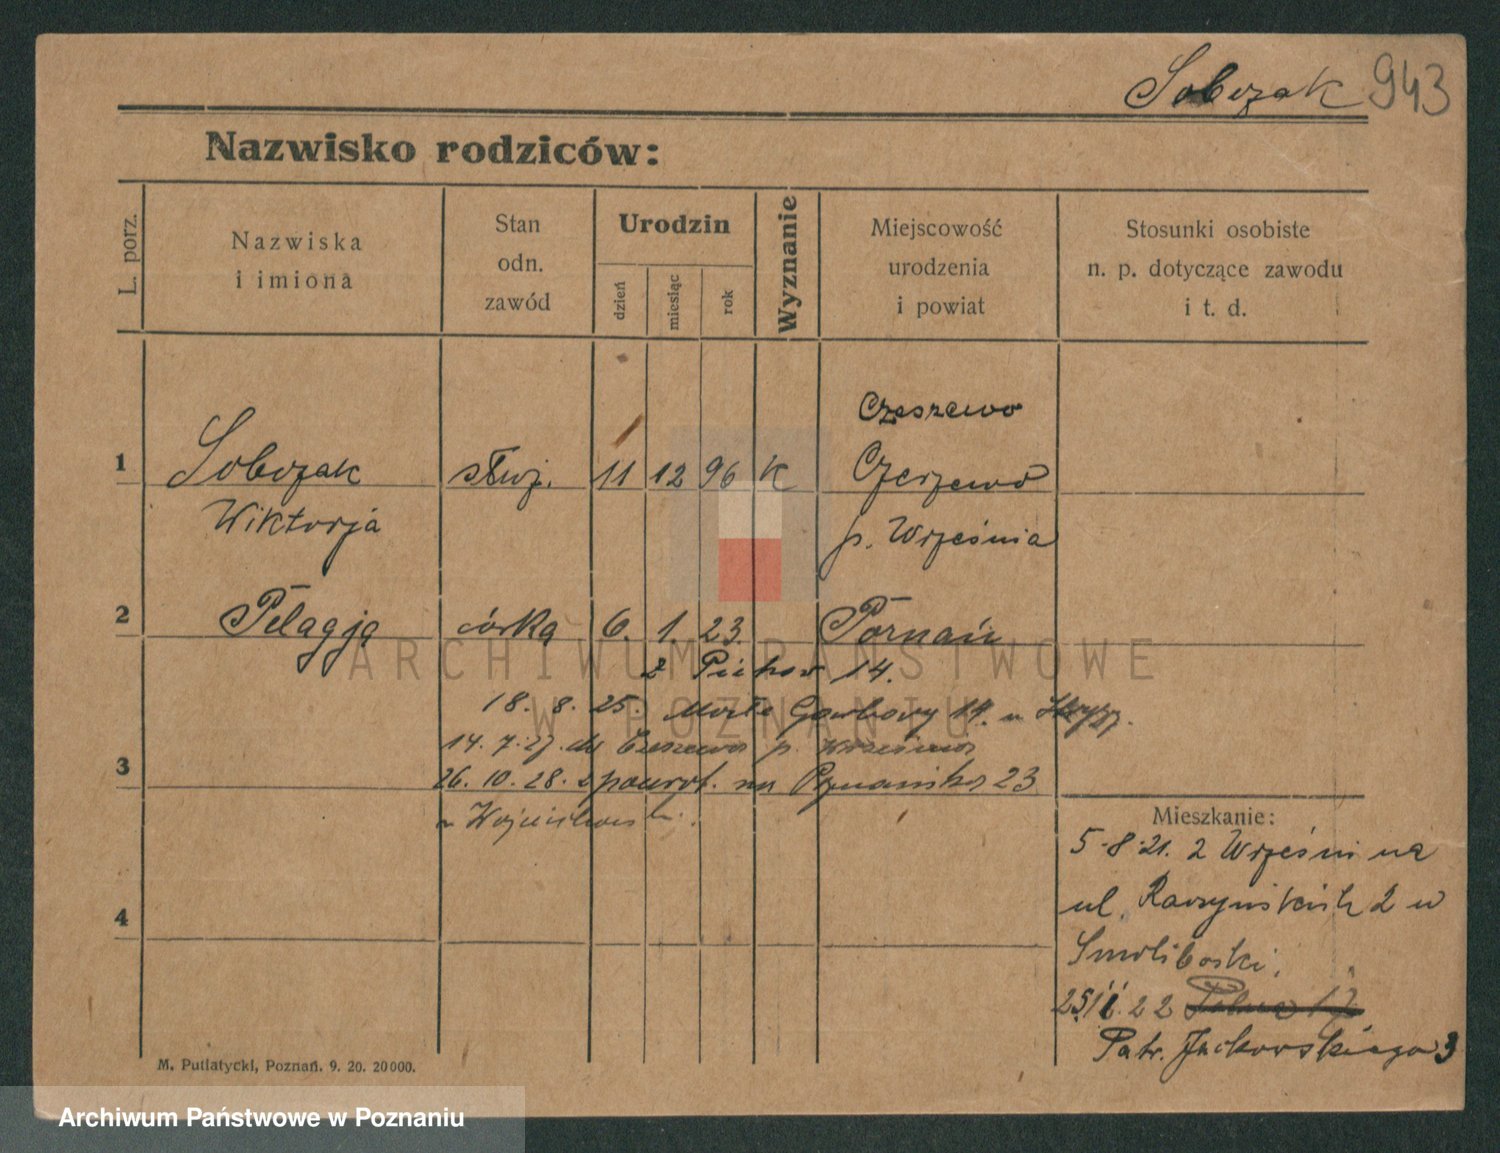 Sobczak 943
Nazwisko rodziców:
L. porz.
Nazwiska
i imiona
Stan
odn.
zawód
Urodzin
dzień
miesiąc
rok
Wyznanie
Miejscowość
urodzenia
i powiat
Stosunki osobiste
n. p. dotyczące zawodu
i t. d.
Czeszewo
1 Sobczak służ. 11 12 96 K Czerzewo
Wiktorja p. Września
2 Pelagja córka 6. 1. 23. Poznań
14.
18. 8. 25. Garbary 14.
14. 7. 27. do Czeszewa p. Września
3 26. 10. 28. spowrot. na Poznańska 23
Mieszkanie:
5-8-21. z Wrześni na
ul. 2 w
4
22
Patr. Jackowskiego 3
M. Putiatycki, Poznań. 9. 20. 20000.
ARCHIWUM PAŃSTWOWE
W POZNANIU
Archiwum Państwowe w Poznaniu